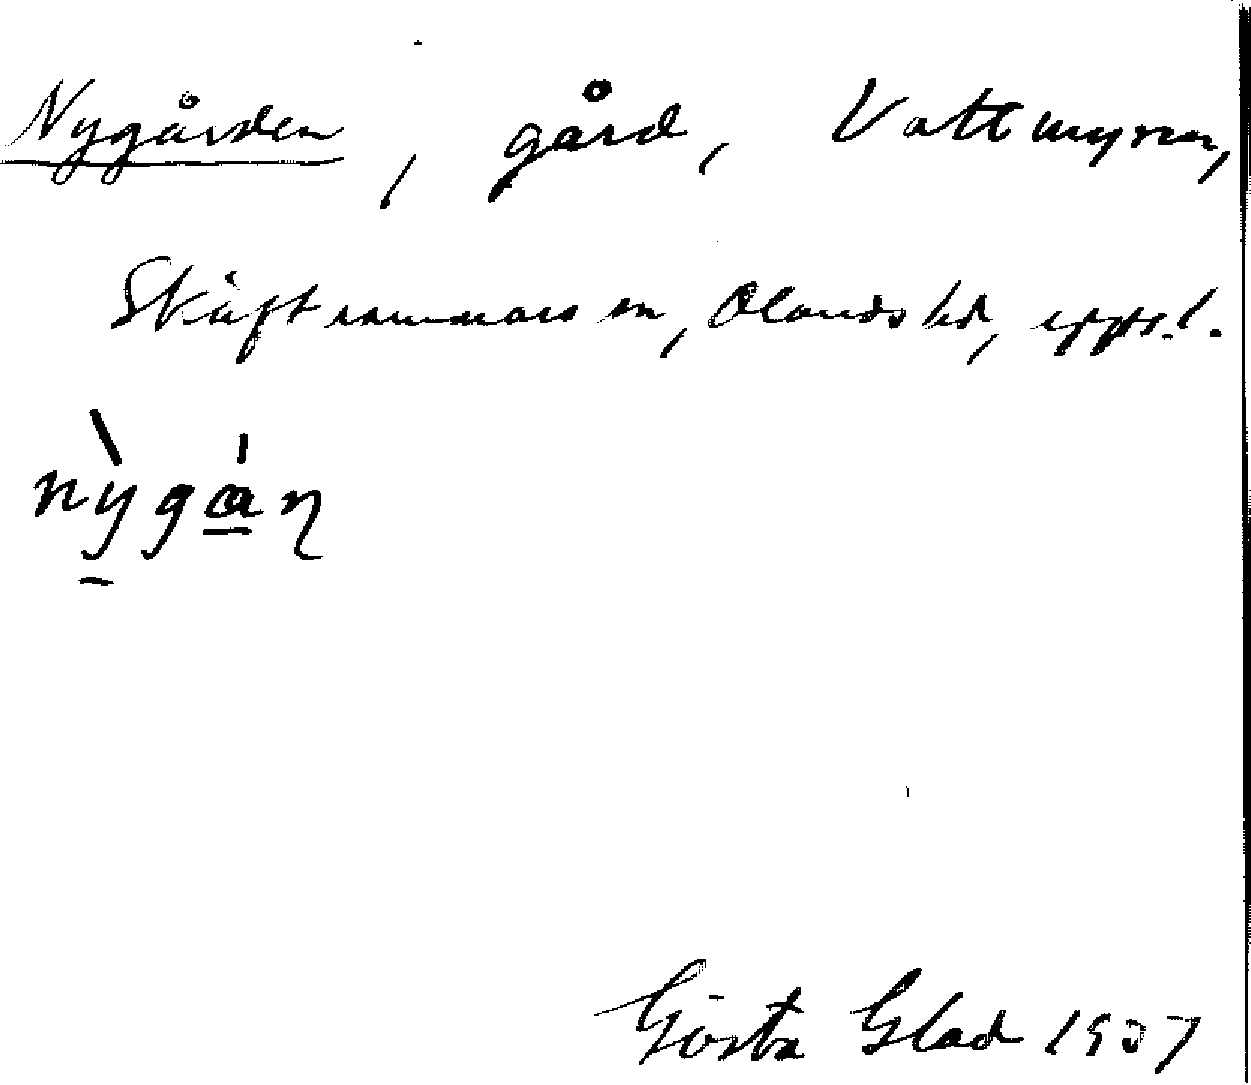 Nygården, gård, Vattmyran,
Skäfthammars sn, Olands hd, Uppsl.
nỳgȧn
Gösta Glad 1937